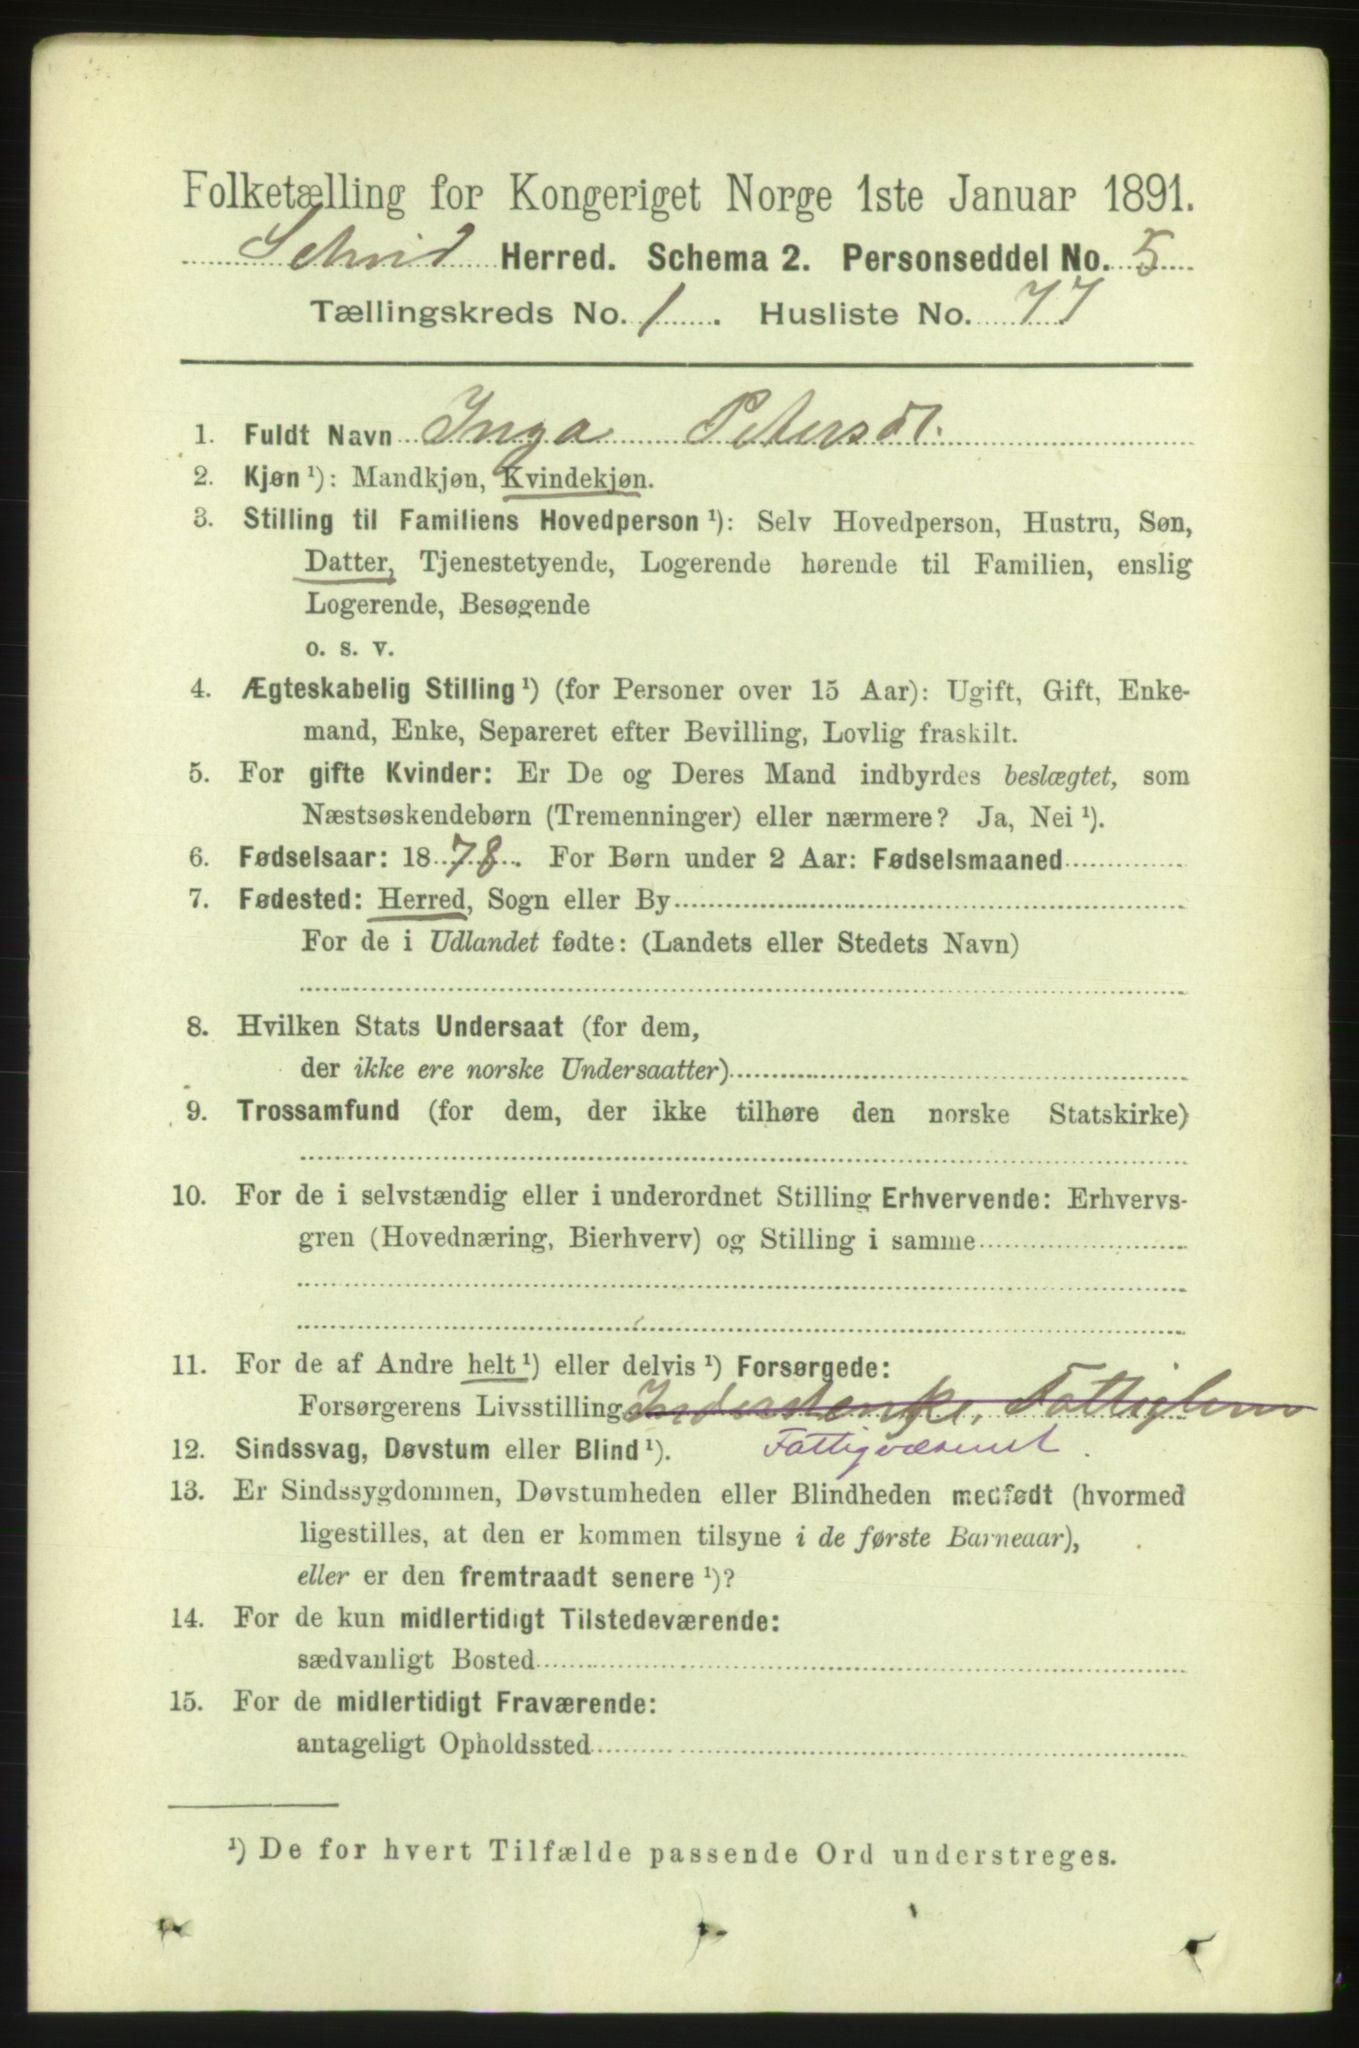 Folketælling for Kongeriget Norge 1ste Januar 1891.
Schvid Herred. Schema 2. Personseddel No. 5
Tællingskreds No. 1. Husliste No. 77
1. Fuldt Navn Inga Petersdt.
2. Kjøn ¹): Mandkjøn, Kvindekjøn.
3. Stilling til Familiens Hovedperson ¹): Selv Hovedperson, Hustru, Søn,
Datter, Tjenestetyende, Logerende hørende til Familien, enslig
Logerende, Besøgende
o. s. v.
4. Ægteskabelig Stilling ¹) (for Personer over 15 Aar): Ugift, Gift, Enke-
mand, Enke, Separeret efter Bevilling, Lovlig fraskilt.
5. For gifte Kvinder: Er De og Deres Mand indbyrdes beslægtet, som
Næstsøskendebørn (Tremenninger) eller nærmere? Ja, Nei ¹).
6. Fødselsaar: 1878. For Børn under 2 Aar: Fødselsmaaned
7. Fødested: Herred, Sogn eller By
For de i Udlandet fødte: (Landets eller Stedets Navn)
8. Hvilken Stats Undersaat (for dem,
der ikke ere norske Undersaatter)
9. Trossamfund (for dem, der ikke tilhøre den norske Statskirke)
10. For de i selvstændig eller i underordnet Stilling Erhvervende: Erhvervs-
gren (Hovednæring, Bierhverv) og Stilling i samme
11. For de af Andre helt ¹) eller delvis ¹) Forsørgede:
Forsørgerens Livsstilling Inderstenke, Fattiglem
12. Sindssvag, Døvstum eller Blind ¹). Fattigvæsenet.
13. Er Sindssygdommen, Døvstumheden eller Blindheden medfødt (hvormed
ligestilles, at den er kommen tilsyne i de første Barneaar),
eller er den fremtraadt senere ¹)?
14. For de kun midlertidigt Tilstedeværende:
sædvanligt Bosted
15. For de midlertidigt Fraværende:
antageligt Opholdssted
¹) De for hvert Tilfælde passende Ord understreges.